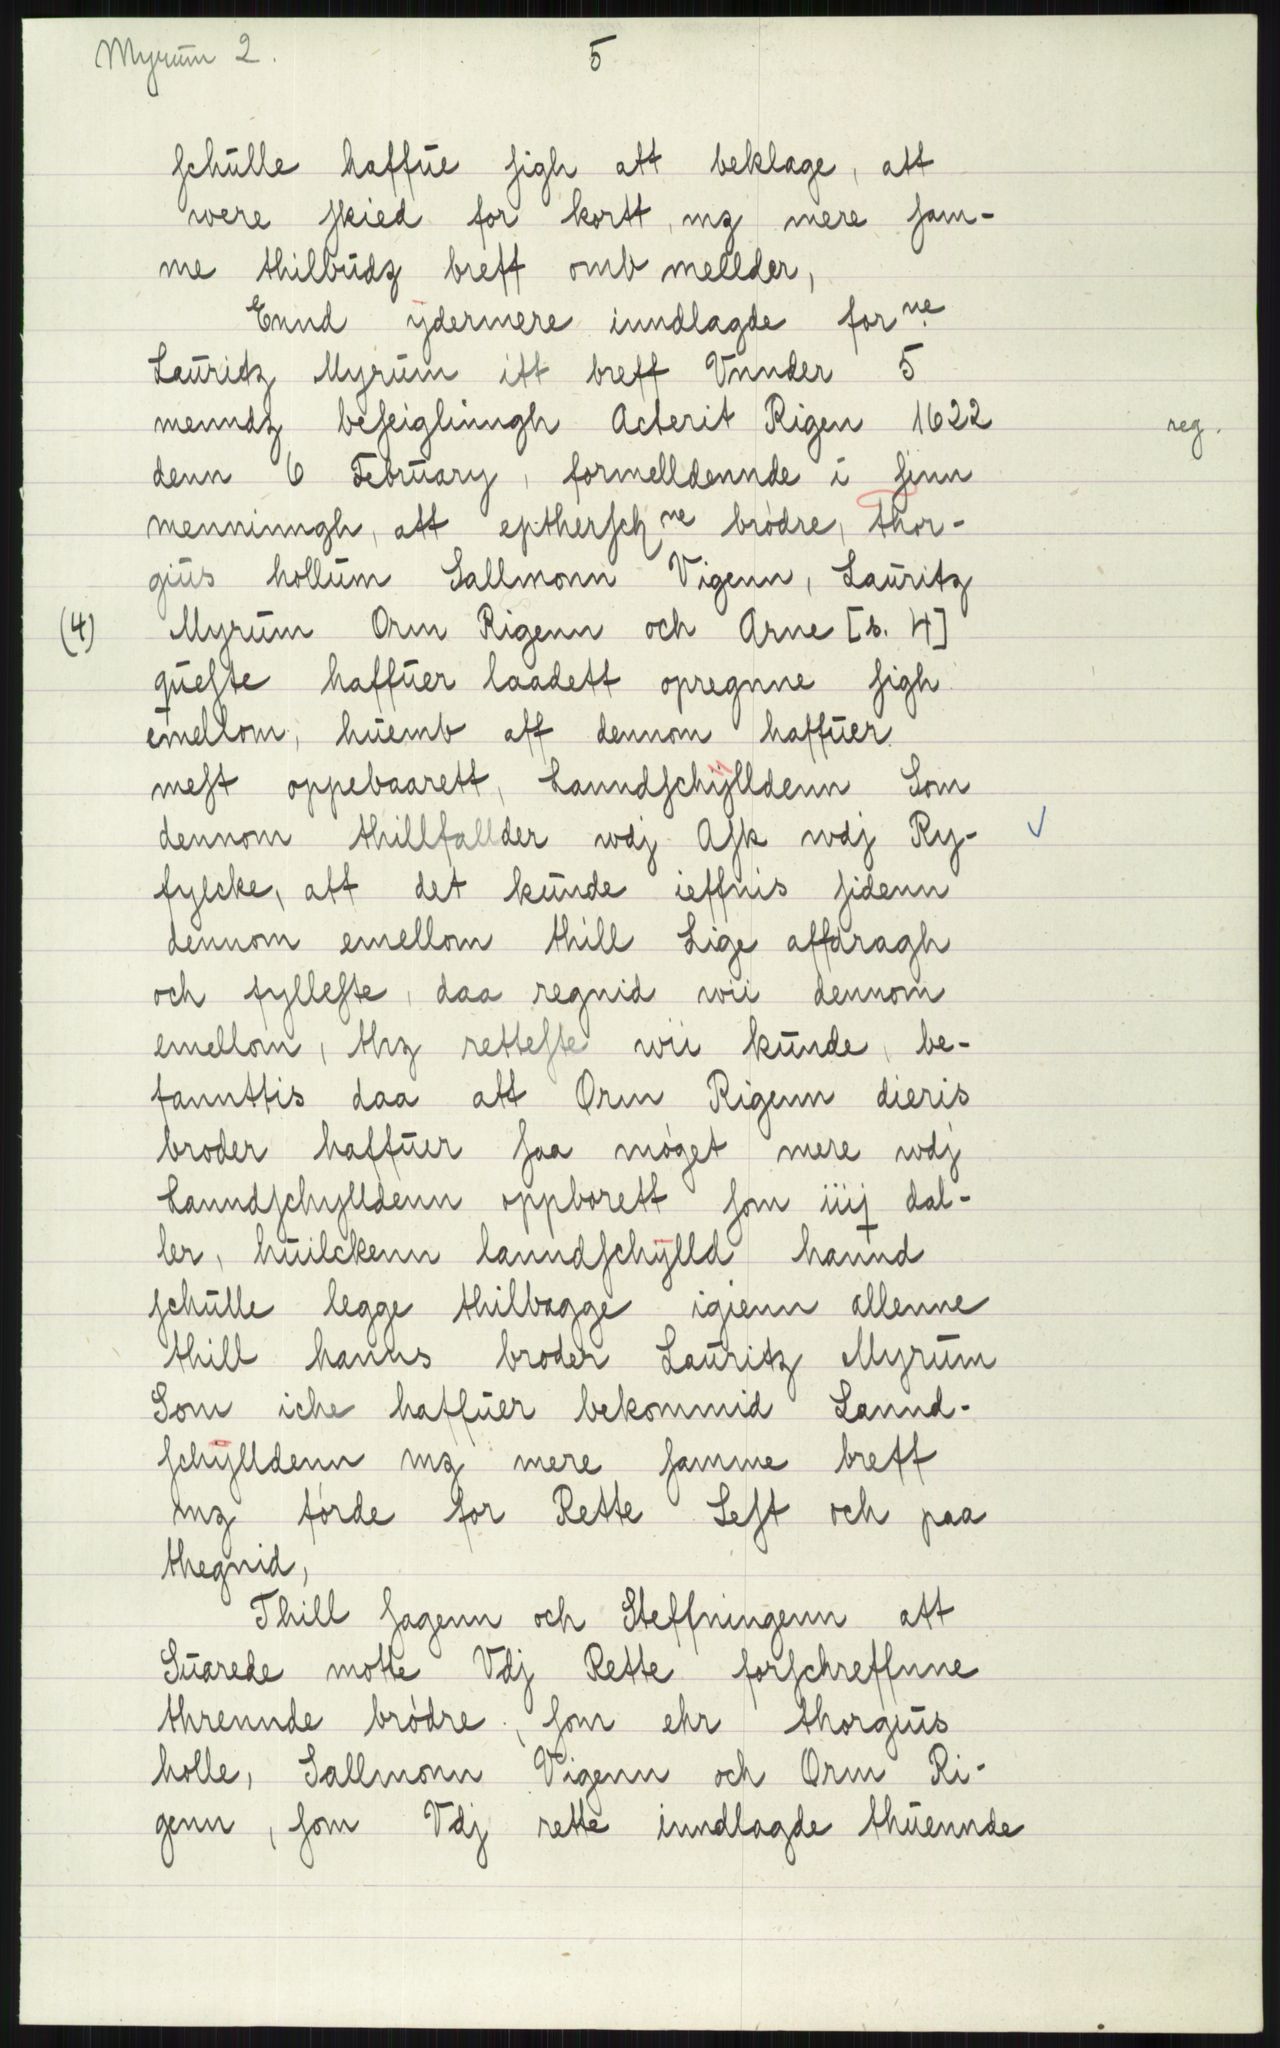 Myrum 2.
5
schulle haffue sigh att beklage, att
were skied for kortt, mz mere sam-
me thilbudz breff omb mellder,
Ennd ydermere inndlagde for ne
Lauritz Myrum itt breff Vnnder 5
menndz beseiglinngh Acterit Rigen 1622
reg.
denn 6 February, formelldennde i sinn
menninngh, att epthersch ne brødre, thor-
gius hollum Sallmonn Vigenn, Lauritz
(4) Myrum Orm Rigenn och Arne [s. 4]
queste haffuer laadett opregnne sigh
emellom, huemb aff dennom haffuer
mest oppebaarett, Lanndschylldenn Som
dennom thillfallder wdj Ask wdj Ry-
fylcke, att det kunde ieffnis sidenn
dennom emellom thill Lige affdragh
och fylleste, daa regnid wii dennom
emellom, thz retteste wii kunde, be-
fannttis daa att Orm Rigenn dieris
broder haffuer saa møget mere wdj
Lanndschylldenn oppborett som iiij dal-
ler, huilckenn lanndschylld hannd
schulle legge thilbagge igienn allenne
thill hanns broder Lauritz Myrum
Som iche haffuer bekommid Lannd-
schylldenn mz mere samme breff
mz førde for Rette Lest och paa
thegnid,
Thill sagenn och Steffningenn att
Suarede motte Vdj Rette forschreffnne
thrennde brødre, som ehr thorgius
holle, Sallmonn Vigenn och Orm Ri-
genn, som Vdj rette inndlagde thuennde